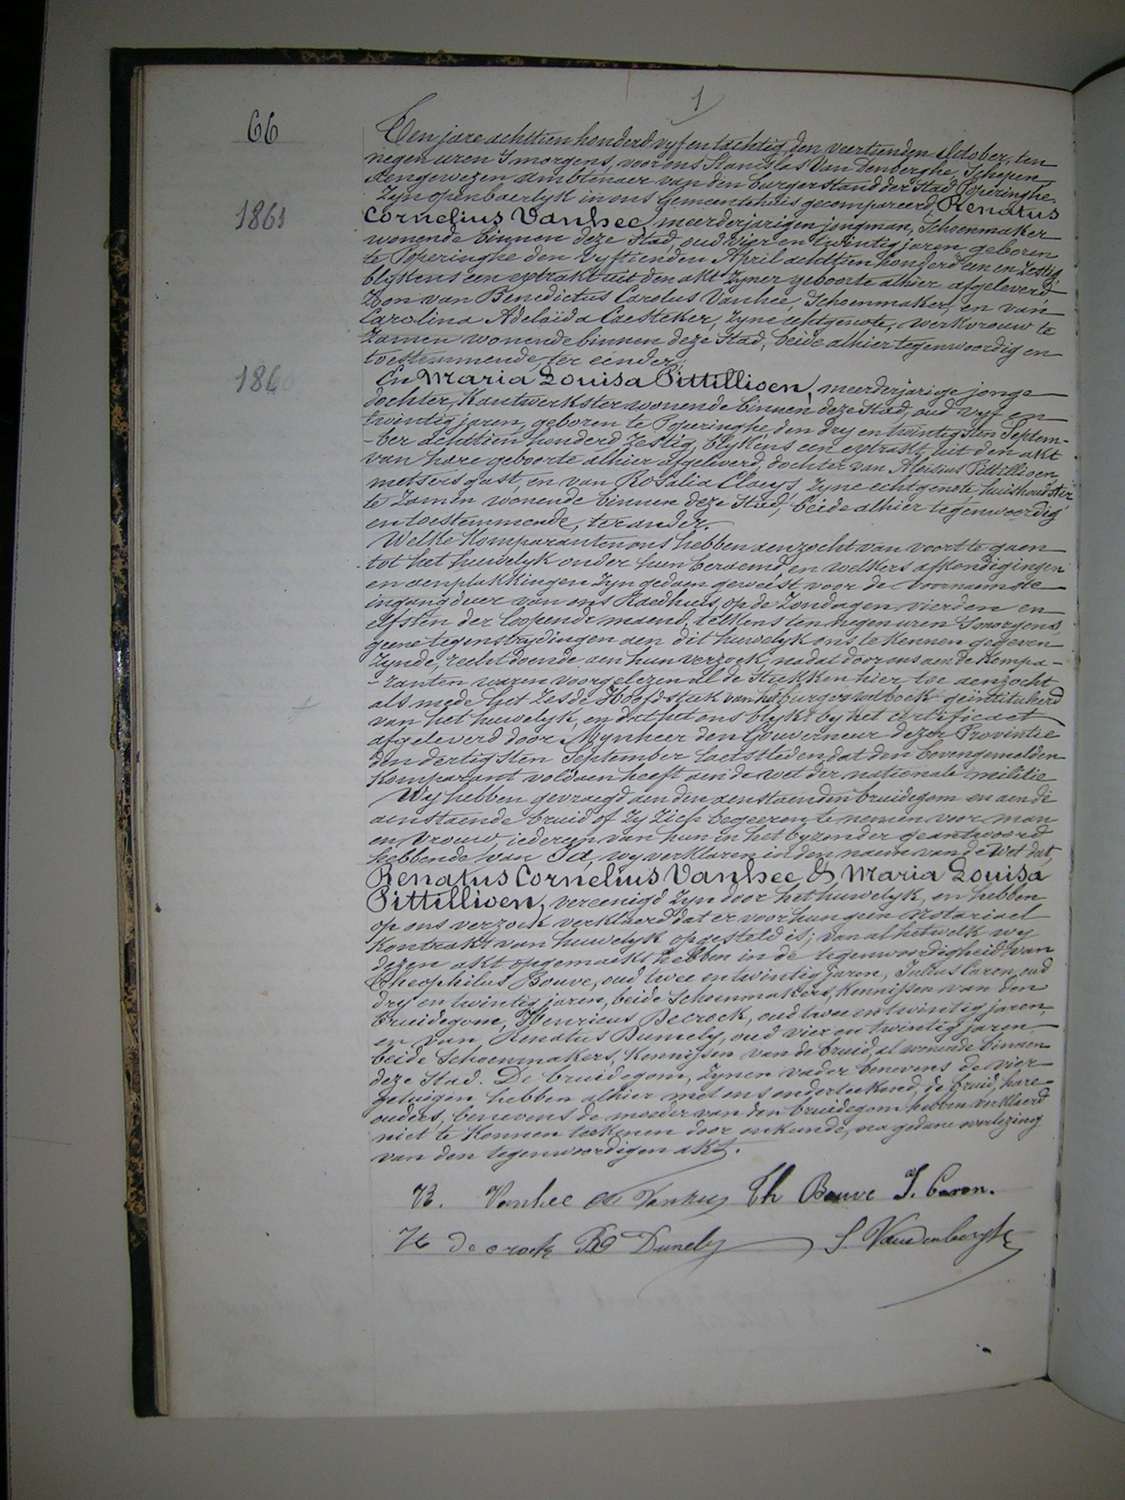 1
66
Ten jare achttien honderd vyf en tachtig, den veertienden October, ten
negen uren 's morgens, voor ons Stanislas Van denberghe, Schepen
aengewezen ambtenaer van den burgerstand der Stad Poperinghe,
Zyn openbaerlyk in ons gemeentehuis gecompareerd, Renatus
1861
Cornelius Vanhee, meerderjarigen jongman, Schoenmaker
wonende binnen deze Stad, oud vier en twintig jaren, geboren
te Poperinghe den vyftienden April achttien honderd een en zestig
blykens een extrakt uit den akt zyner geboorte alhier afgeleverd,
Zoon van Benedictus Carolus Vanhee, Schoenmaker, en van
Carolina Adelaïda Caesteker, zyne echtgenote, werkvrouw te
Zamen wonende binnen deze Stad, beide alhier tegenwoordig en
toestemmende, ter eender,
1860
En Maria Louisa Pittillioen, meerderjarige jonge
dochter, Kantwerkster wonende binnen deze Stad, oud vyf en
twintig jaren, geboren te Poperinghe den dry en twintigsten Septem-
-ber achttien honderd zestig, blykens een extrakt uit den akt
van hare geboorte alhier afgeleverd, dochter van Aloisius Pittillioen,
metsersgast, en van Rosalia Claeys, zyne echtgenote, huishoudster
te Zamen wonende binnen deze Stad, beide alhier tegenwoordig
en toestemmende, ter ander.
Welke Komparanten ons hebben aenzocht van voort te gaen
tot het huwelyk onder hun beraemd, en welkers afkondigingen
en aenplakkingen zyn gedaen geweest voor de voornaemste
ingangdeur van ons Raedhuis, op de Zondagen vierden en
elfsten der loopende maend, telkens ten negen uren 's morgens,
geene tegenstrydingen aen dit huwelyk ons te kennen gegeven
zynde, recht doende aen hun verzoek, nadat door ons aen de Kompa-
-ranten waren voorgelezen al de Stukken hier toe aenzocht
als mede het zesde Hoofdstuk van het burger wetboek geïntituleerd
van het huwelyk, en dat het ons blykt by het certificaet
afgeleverd door Mynheer den Gouverneur dezer Provintie
den dertigsten September laetstleden dat den bovengemelden
Komparant voldaen heeft aen de wet der nationale militie
Wy hebben gevraegd aen den aenstaenden bruidegom en aen de
aenstaende bruid of zy zich begeeren te nemen voor man
en vrouw, iedereen van hun in het byzonder geantwoord
hebbende van Ja, wy verklaren in den naem van de Wet dat,
Renatus Cornelius Vanhee & Maria Louisa
Pittillioen, vereenigd zyn door het huwelyk, en hebben
op ons verzoek verklaerd dat er voor hun geen notariael
Kontrakt van huwelyk opgesteld is; van al hetwelk wy
dezen akt opgemaekt hebben in de tegenwoordigheid van
Theophilus Bouve, oud twee en twintig jaren, Julius Caron, oud
dry en twintig jaren, beide Schoenmakers, Kennissen van den
bruidegom, Henricus Decrock, oud twee en twintig jaren,
en van Renatus Dumely, oud vier en twintig jaren
beide Schoenmakers, Kennissen van de bruid, al wonende binnen
deze Stad. De bruidegom, zynen vader benevens de vier
getuigen hebben alhier met ons onderteekend, de bruid, hare
ouders, benevens de moeder van den bruidegom hebben verklaerd
niet te Konnen teekenen door onkunde, na gedane voorlezing
van den tegenwoordigen akt.
R. Vanhee Vanhee Th Bouve J. Caron.
H de crock Dumely S. Vandenberghe